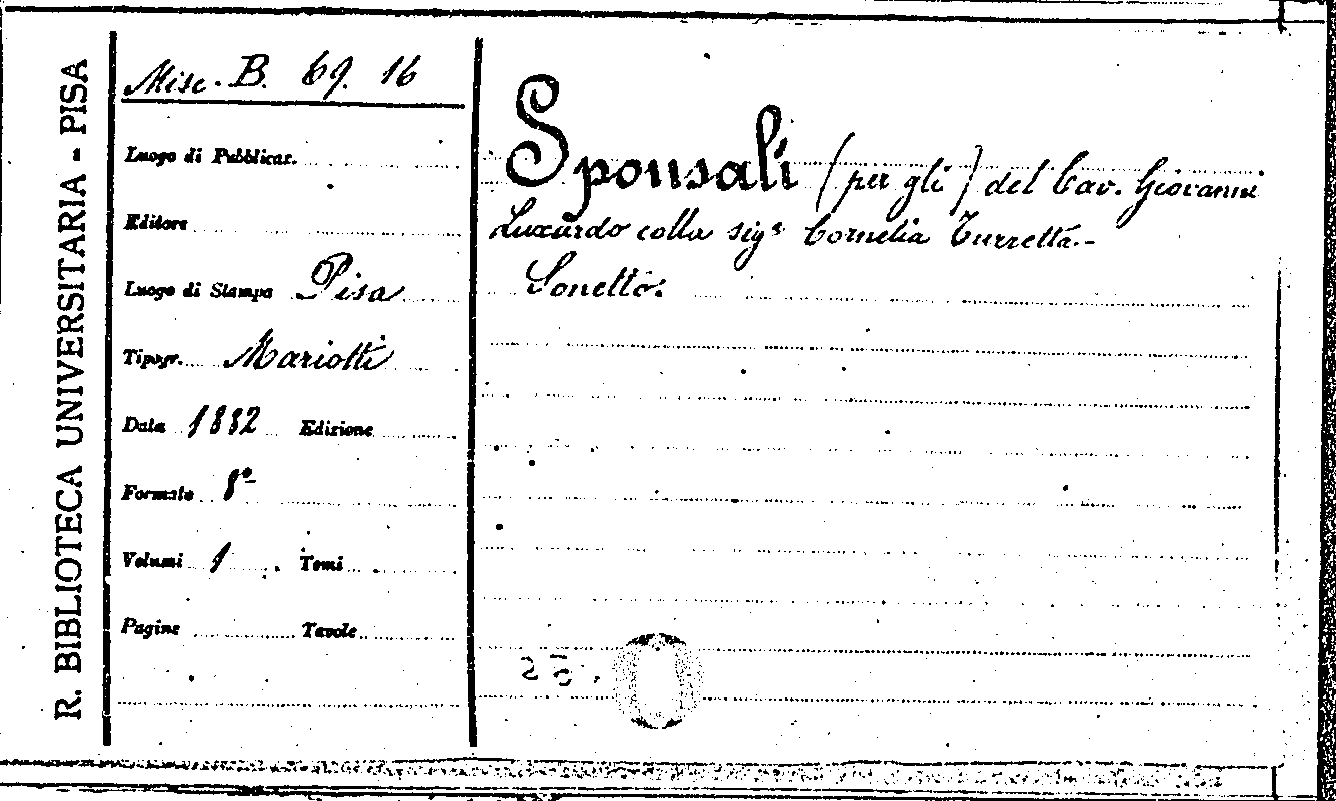 R. BIBLIOTECA UNIVERSITARIA - PISA
Misc. B. 69. 16
Luogo di Pubblicaz.
Editore
Luogo di Stampa Pisa
Tipogr. Mariotti
Data 1882 Edizione
Formato 8º
Volumi 1 Tomi
Pagine Tavole
Sponsali (per gli) del Cav. Giovanni
Luxardo colla sigª Cornelia Turretta.-
Sonetto.